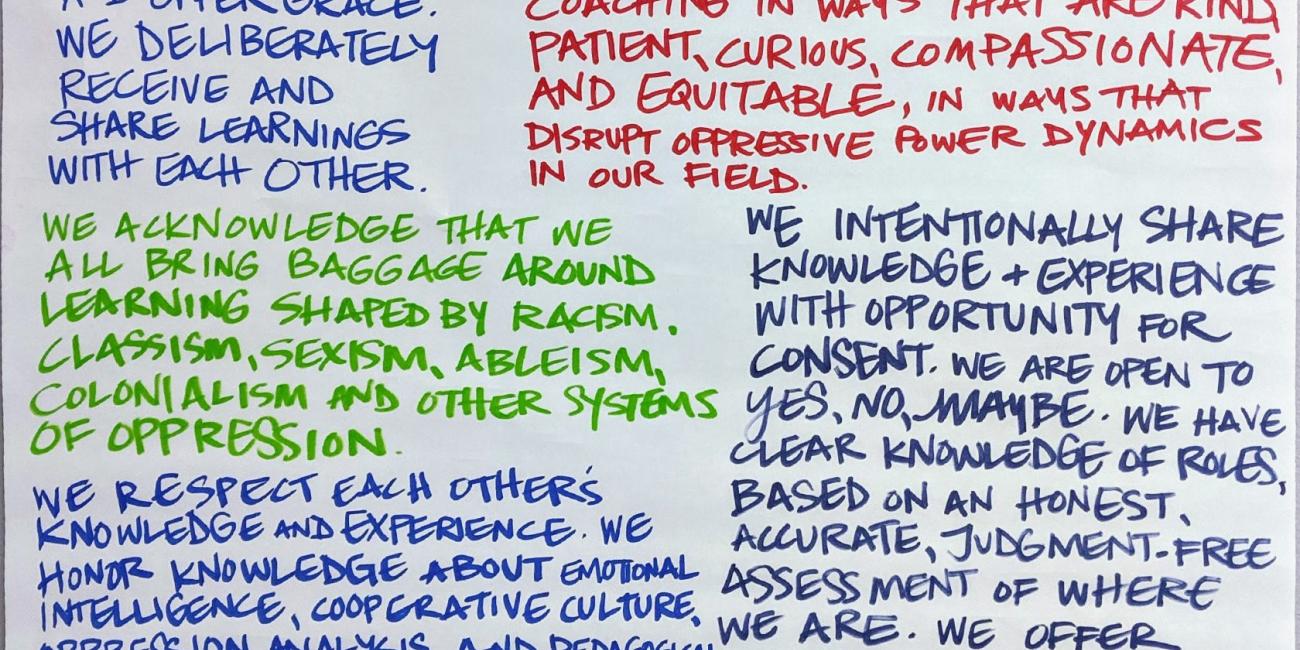 OFFER GRACE.
WE DELIBERATELY
RECEIVE AND
SHARE LEARNINGS
WITH EACH OTHER.
COACHING IN WAYS THAT ARE KIND,
PATIENT, CURIOUS, COMPASSIONATE,
AND EQUITABLE, IN WAYS THAT
DISRUPT OPPRESSIVE POWER DYNAMICS
IN OUR FIELD.
WE ACKNOWLEDGE THAT WE
ALL BRING BAGGAGE AROUND
LEARNING SHAPED BY RACISM,
CLASSISM, SEXISM, ABLEISM,
COLONIALISM AND OTHER SYSTEMS
OF OPPRESSION.
WE RESPECT EACH OTHER'S
KNOWLEDGE AND EXPERIENCE. WE
HONOR KNOWLEDGE ABOUT EMOTIONAL
INTELLIGENCE, COOPERATIVE CULTURE,
OPPRESSION ANALYSIS, AND
WE INTENTIONALLY SHARE
KNOWLEDGE + EXPERIENCE
WITH OPPORTUNITY FOR
CONSENT. WE ARE OPEN TO
YES, NO, MAYBE. WE HAVE
CLEAR KNOWLEDGE OF ROLES,
BASED ON AN HONEST,
ACCURATE, JUDGMENT-FREE
ASSESSMENT OF WHERE
WE ARE. WE OFFER